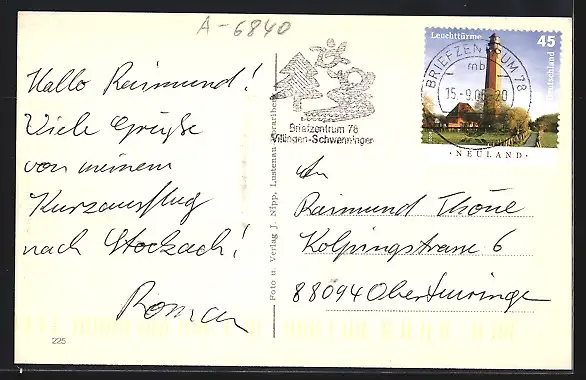 A-6840
Hallo Raimund!
Viele Grüße
von meinem
Kurzausflug
nach Stockach!
Roman
225
Foto u. Verlag J. Nipp, Lustenau Vorarlberg
Briefzentrum 78
Villingen-Schwenningen
BRIEFZENTRUM 78
mb
15.-9.05-20
Leuchttürme
45
Deutschland
·NEULAND·
An
Raimund Thöne
Kolpingstrasse 6
88094 Oberteuringen